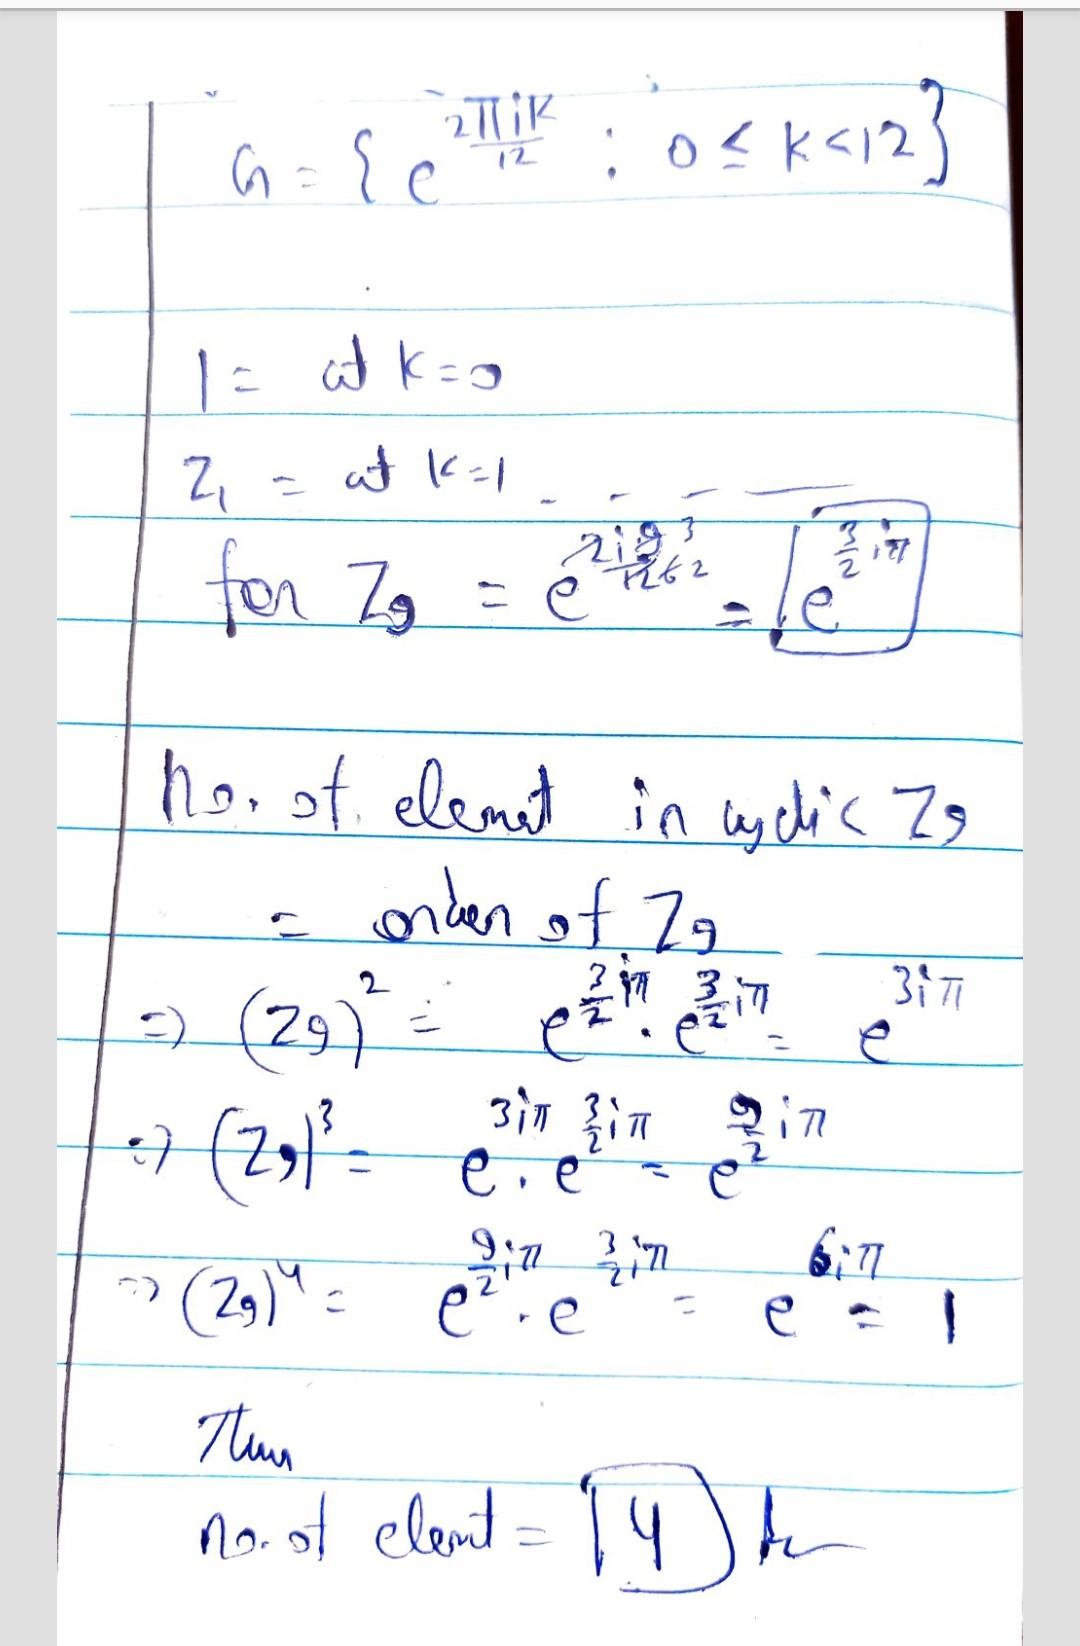 G = { e^{2πik/12} ; 0 ≤ k < 12}
1 = at k=0
Z₁ = at k=1 - - - —
for Z₉ = e = e^{3/2 iπ}
No. of elemet in cyclic Z₉
= order of Z₉
=> (Z₉)² = e^{3/2 iπ} . e^{3/2 iπ} = e^{3iπ}
=> (Z₉)³ = e^{3iπ} . e^{3/2 iπ} = e^{9/2 iπ}
=> (Z₉)⁴ = e^{9/2 iπ} . e^{3/2 iπ} = e^{6iπ} = 1
Thus
no. of elemt = 4